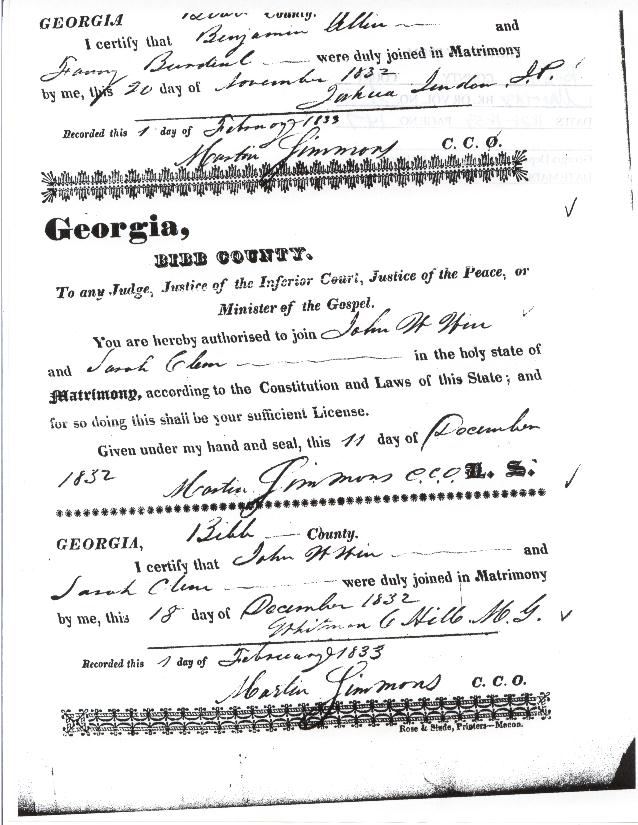 GEORGIA County.
I certify that Benjamin Allin and
Fanny were duly joined in Matrimony
by me, this 20 day of November 1832
Joshua J. P.
Recorded this 1 day of February 1833
Martin Simmons C. C. O.
Georgia,
BIBB COUNTY.
To any Judge, Justice of the Inferior Court, Justice of the Peace, or
Minister of the Gospel.
You are hereby authorised to join John W Win
and Sarah Clem in the holy state of
Matrimony, according to the Constitution and Laws of this State; and
for so doing this shall be your sufficient License.
Given under my hand and seal, this 11 day of December
1832 Martin Simmons C.C.O. L. S.
GEORGIA, Bibb County.
I certify that John W Win and
Sarah Clem were duly joined in Matrimony
by me, this 18 day of December 1832
Whitman C Hill M. G.
Recorded this 1 day of February 1833
Martin Simmons C. C. O.
Rose & Slade, Printers—Macon.